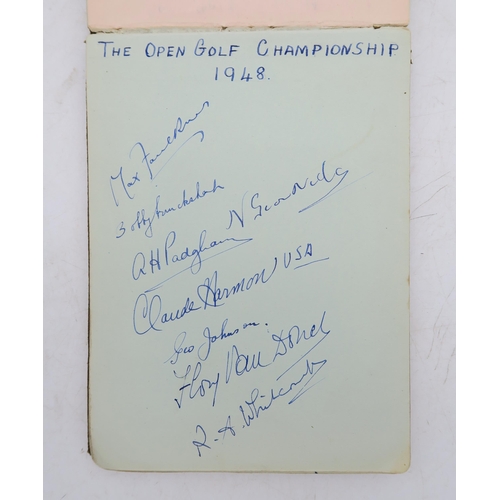 THE OPEN GOLF CHAMPIONSHIP
1948.
Max Faulkner
Bobby Cruickshank
AH Padgham N Von Nida
Claude Harmon USA
Geo Johnson.
Flory Van Donck
R. A. Whitcombe